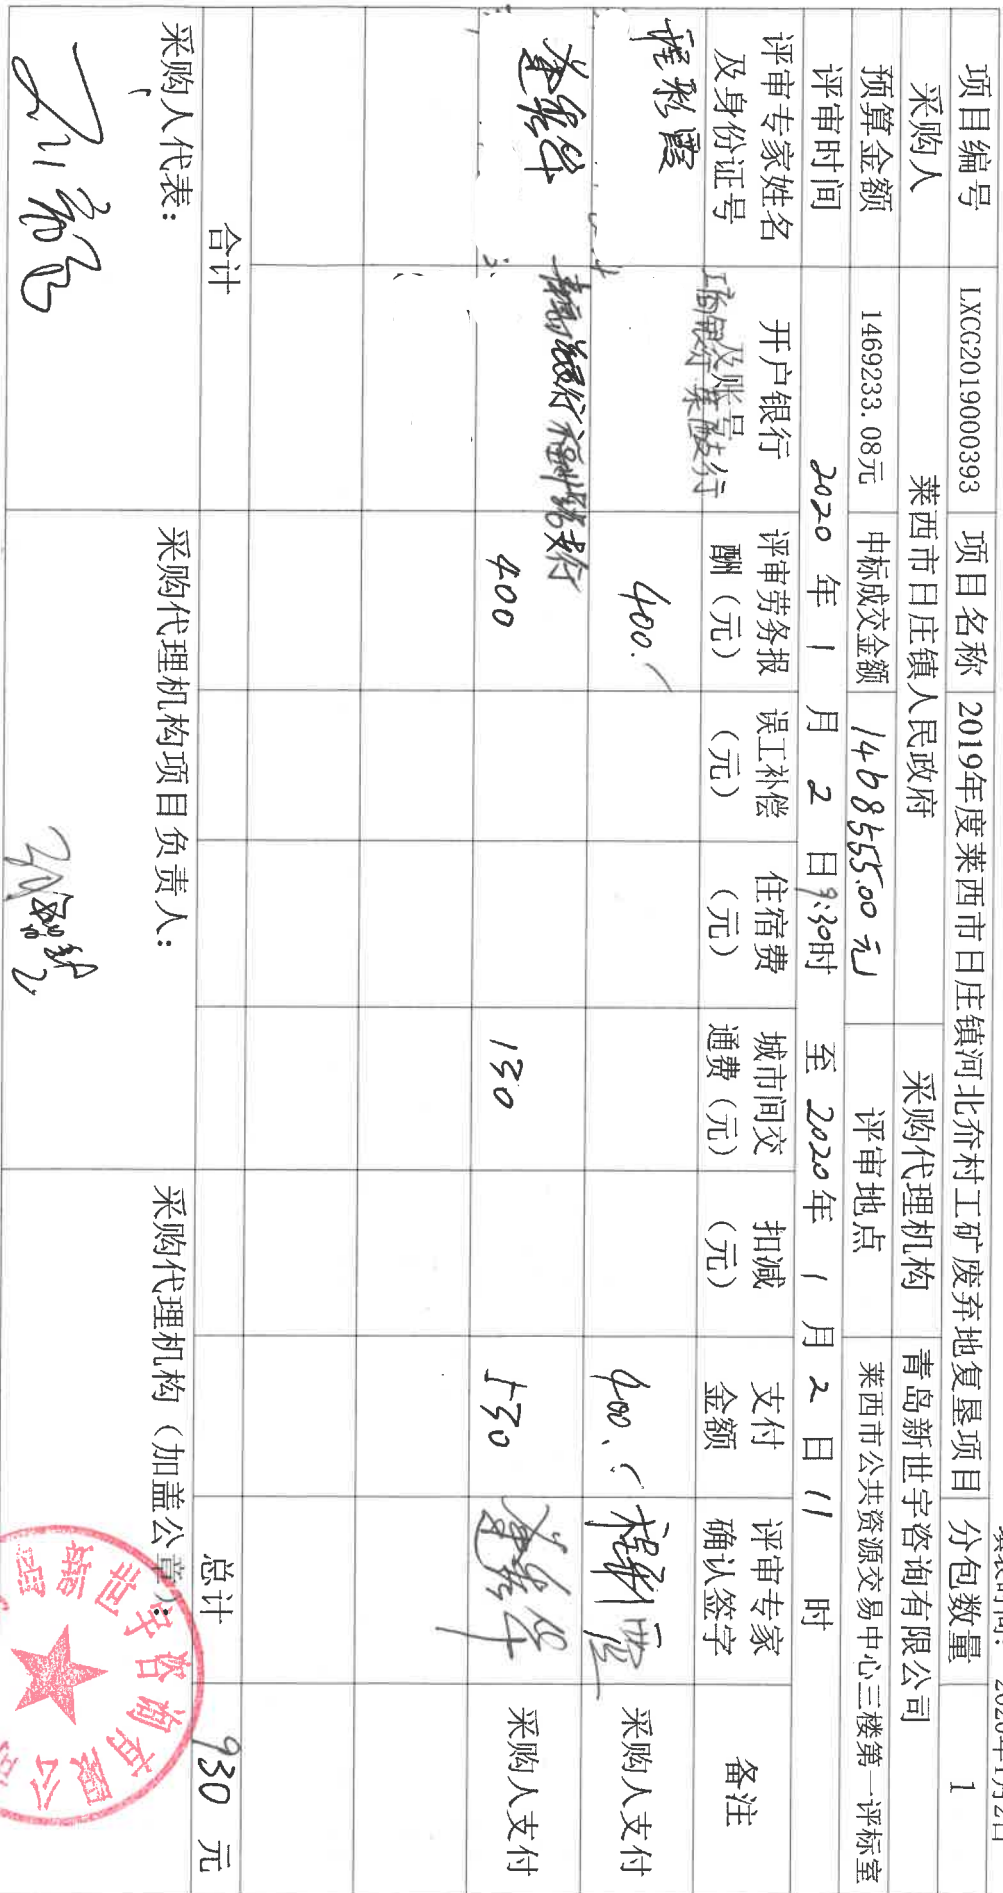 2020年1月2日
项目编号 LXCG2019000393 项目名称 2019年度莱西市日庄镇河北夼村工矿废弃地复垦项目 分包数量 1
采购人 莱西市日庄镇人民政府 采购代理机构 青岛新世宇咨询有限公司
预算金额 1469233.08元 中标成交金额 1468555.00 元 评审地点 莱西市公共资源交易中心三楼第一评标室
评审时间 2020 年 1 月 2 日 9:30时 至 2020年 1 月 2 日 11 时
评审专家姓名 开户银行 评审劳务报 误工补偿 住宿费 城市间交 扣减 支付 评审专家 备注
及身份证号 及账号 酬（元） （元） （元） 通费（元） （元） 金额 确认签字
程彩霞 400. 400. 程彩霞 采购人支付
400 130 530 采购人支付
合计 总计 930 元
采购人代表： 采购代理机构项目负责人： 采购代理机构（加盖公章）：
新世宇咨询有限公